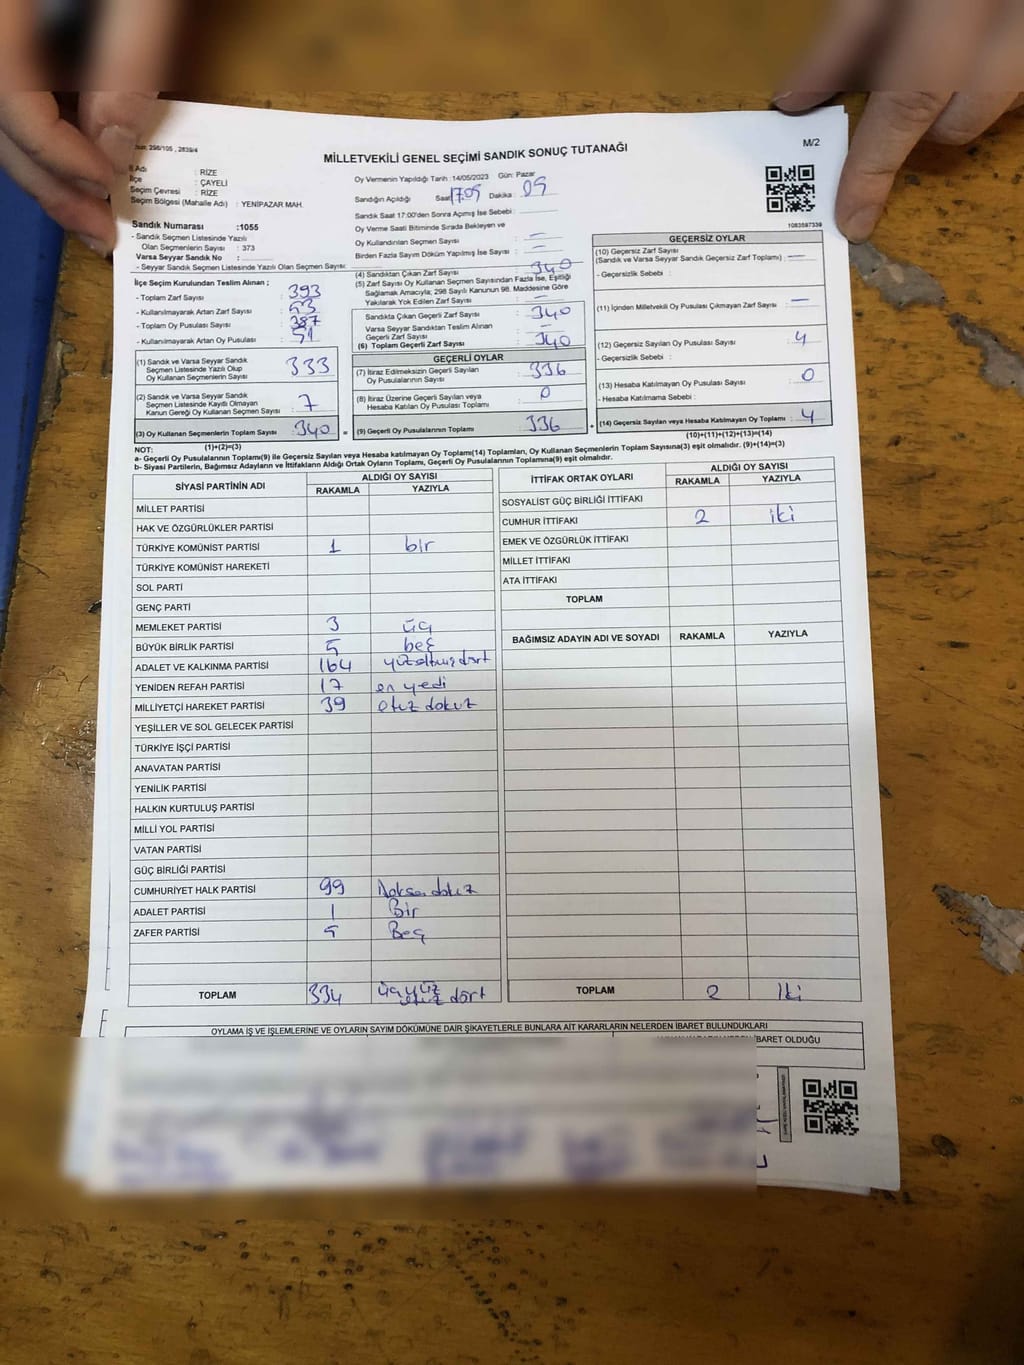 298/105 , 2839/4
M/2
MİLLETVEKİLİ GENEL SEÇİMİ SANDIK SONUÇ TUTANAĞI
İl Adı : RİZE
İlçe : ÇAYELİ
Seçim Çevresi : RİZE
Seçim Bölgesi (Mahalle Adı) : YENİPAZAR MAH.
Oy Vermenin Yapıldığı Tarih :14/05/2023 Gün: Pazar
Sandığın Açıldığı Saat 17.05 Dakika : 05
Sandık Saat 17:00'den Sonra Açımış İse Sebebi :
Oy Verme Saati Bitiminde Sırada Bekleyen ve
Oy Kullandırılan Seçmen Sayısı : —
Birden Fazla Sayım Döküm Yapılmış İse Sayısı : —
1083597339
Sandık Numarası :1055
- Sandık Seçmen Listesinde Yazılı
Olan Seçmenlerin Sayısı : 373
Varsa Seyyar Sandık No :
- Seyyar Sandık Seçmen Listesinde Yazılı Olan Seçmen Sayısı:
İlçe Seçim Kurulundan Teslim Alınan ;
- Toplam Zarf Sayısı : 393
- Kullanılmayarak Artan Zarf Sayısı : 53
- Toplam Oy Pusulası Sayısı : 387
- Kullanılmayarak Artan Oy Pusulası : 51
(1) Sandık ve Varsa Seyyar Sandık
Seçmen Listesinde Yazılı Olup
Oy Kullanan Seçmenlerin Sayısı : 333
(2) Sandık ve Varsa Seyyar Sandık
Seçmen Listesinde Kayıtlı Olmayan
Kanun Gereği Oy Kullanan Seçmen Sayısı : 7
(3) Oy Kullanan Seçmenlerin Toplam Sayısı : 340
(1)+(2)=(3)
(4) Sandıktan Çıkan Zarf Sayısı : 340
(5) Zarf Sayısı Oy Kullanan Seçmen Sayısından Fazla İse, Eşitliği
Sağlamak Amacıyla; 298 Sayılı Kanunun 98. Maddesine Göre
Yakılarak Yok Edilen Zarf Sayısı : —
Sandıkta Çıkan Geçerli Zarf Sayısı : 340
Varsa Seyyar Sandıktan Teslim Alınan
Geçerli Zarf Sayısı : —
(6) Toplam Geçerli Zarf Sayısı : 340
GEÇERLİ OYLAR
(7) İtiraz Edilmeksizin Geçerli Sayılan
Oy Pusulalarının Sayısı : 336
(8) İtiraz Üzerine Geçerli Sayılan veya
Hesaba Katılan Oy Pusulası Toplamı : 0
= (9) Geçerli Oy Pusulalarının Toplamı : 336 +
GEÇERSİZ OYLAR
(10) Geçersiz Zarf Sayısı
(Sandık ve Varsa Seyyar Sandık Geçersiz Zarf Toplamı) : —
- Geçersizlik Sebebi :
(11) İçinden Milletvekili Oy Pusulası Çıkmayan Zarf Sayısı : —
(12) Geçersiz Sayılan Oy Pusulası Sayısı : 4
- Geçersizlik Sebebi :
(13) Hesaba Katılmayan Oy Pusulası Sayısı : 0
- Hesaba Katılmama Sebebi :
(14) Geçersiz Sayılan veya Hesaba Katılmayan Oy Toplamı : 4
(10)+(11)+(12)+(13)=(14)
NOT:
a- Geçerli Oy Pusulalarının Toplamı(9) ile Geçersiz Sayılan veya Hesaba katılmayan Oy Toplamı(14) Toplamları, Oy Kullanan Seçmenlerin Toplam Sayısına(3) eşit olmalıdır. (9)+(14)=(3)
b- Siyasi Partilerin, Bağımsız Adayların ve İttifakların Aldığı Ortak Oyların Toplamı, Geçerli Oy Pusulalarının Toplamına(9) eşit olmalıdır.
SİYASİ PARTİNİN ADI ALDIĞI OY SAYISI
RAKAMLA YAZIYLA
MİLLET PARTİSİ
HAK VE ÖZGÜRLÜKLER PARTİSİ
TÜRKİYE KOMÜNİST PARTİSİ 1 bir
TÜRKİYE KOMÜNİST HAREKETİ
SOL PARTİ
GENÇ PARTİ
MEMLEKET PARTİSİ 3 üç
BÜYÜK BİRLİK PARTİSİ 5 beş
ADALET VE KALKINMA PARTİSİ 164 yüzaltmışdört
YENİDEN REFAH PARTİSİ 17 on yedi
MİLLİYETÇİ HAREKET PARTİSİ 39 otuz dokuz
YEŞİLLER VE SOL GELECEK PARTİSİ
TÜRKİYE İŞÇİ PARTİSİ
ANAVATAN PARTİSİ
YENİLİK PARTİSİ
HALKIN KURTULUŞ PARTİSİ
MİLLİ YOL PARTİSİ
VATAN PARTİSİ
GÜÇ BİRLİĞİ PARTİSİ
CUMHURİYET HALK PARTİSİ 99 Doksan dokuz
ADALET PARTİSİ 1 Bir
ZAFER PARTİSİ 5 Beş
TOPLAM 334 üçyüz otuz dört
İTTİFAK ORTAK OYLARI ALDIĞI OY SAYISI
RAKAMLA YAZIYLA
SOSYALİST GÜÇ BİRLİĞİ İTTİFAKI
CUMHUR İTTİFAKI 2 iki
EMEK VE ÖZGÜRLÜK İTTİFAKI
MİLLET İTTİFAKI
ATA İTTİFAKI
TOPLAM
BAĞIMSIZ ADAYIN ADI VE SOYADI RAKAMLA YAZIYLA
TOPLAM 2 İki
OYLAMA İŞ VE İŞLEMLERİNE VE OYLARIN SAYIM DÖKÜMÜNE DAİR ŞİKAYETLERLE BUNLARA AİT KARARLARIN NELERDEN İBARET BULUNDUKLARI
İBARET OLDUĞU